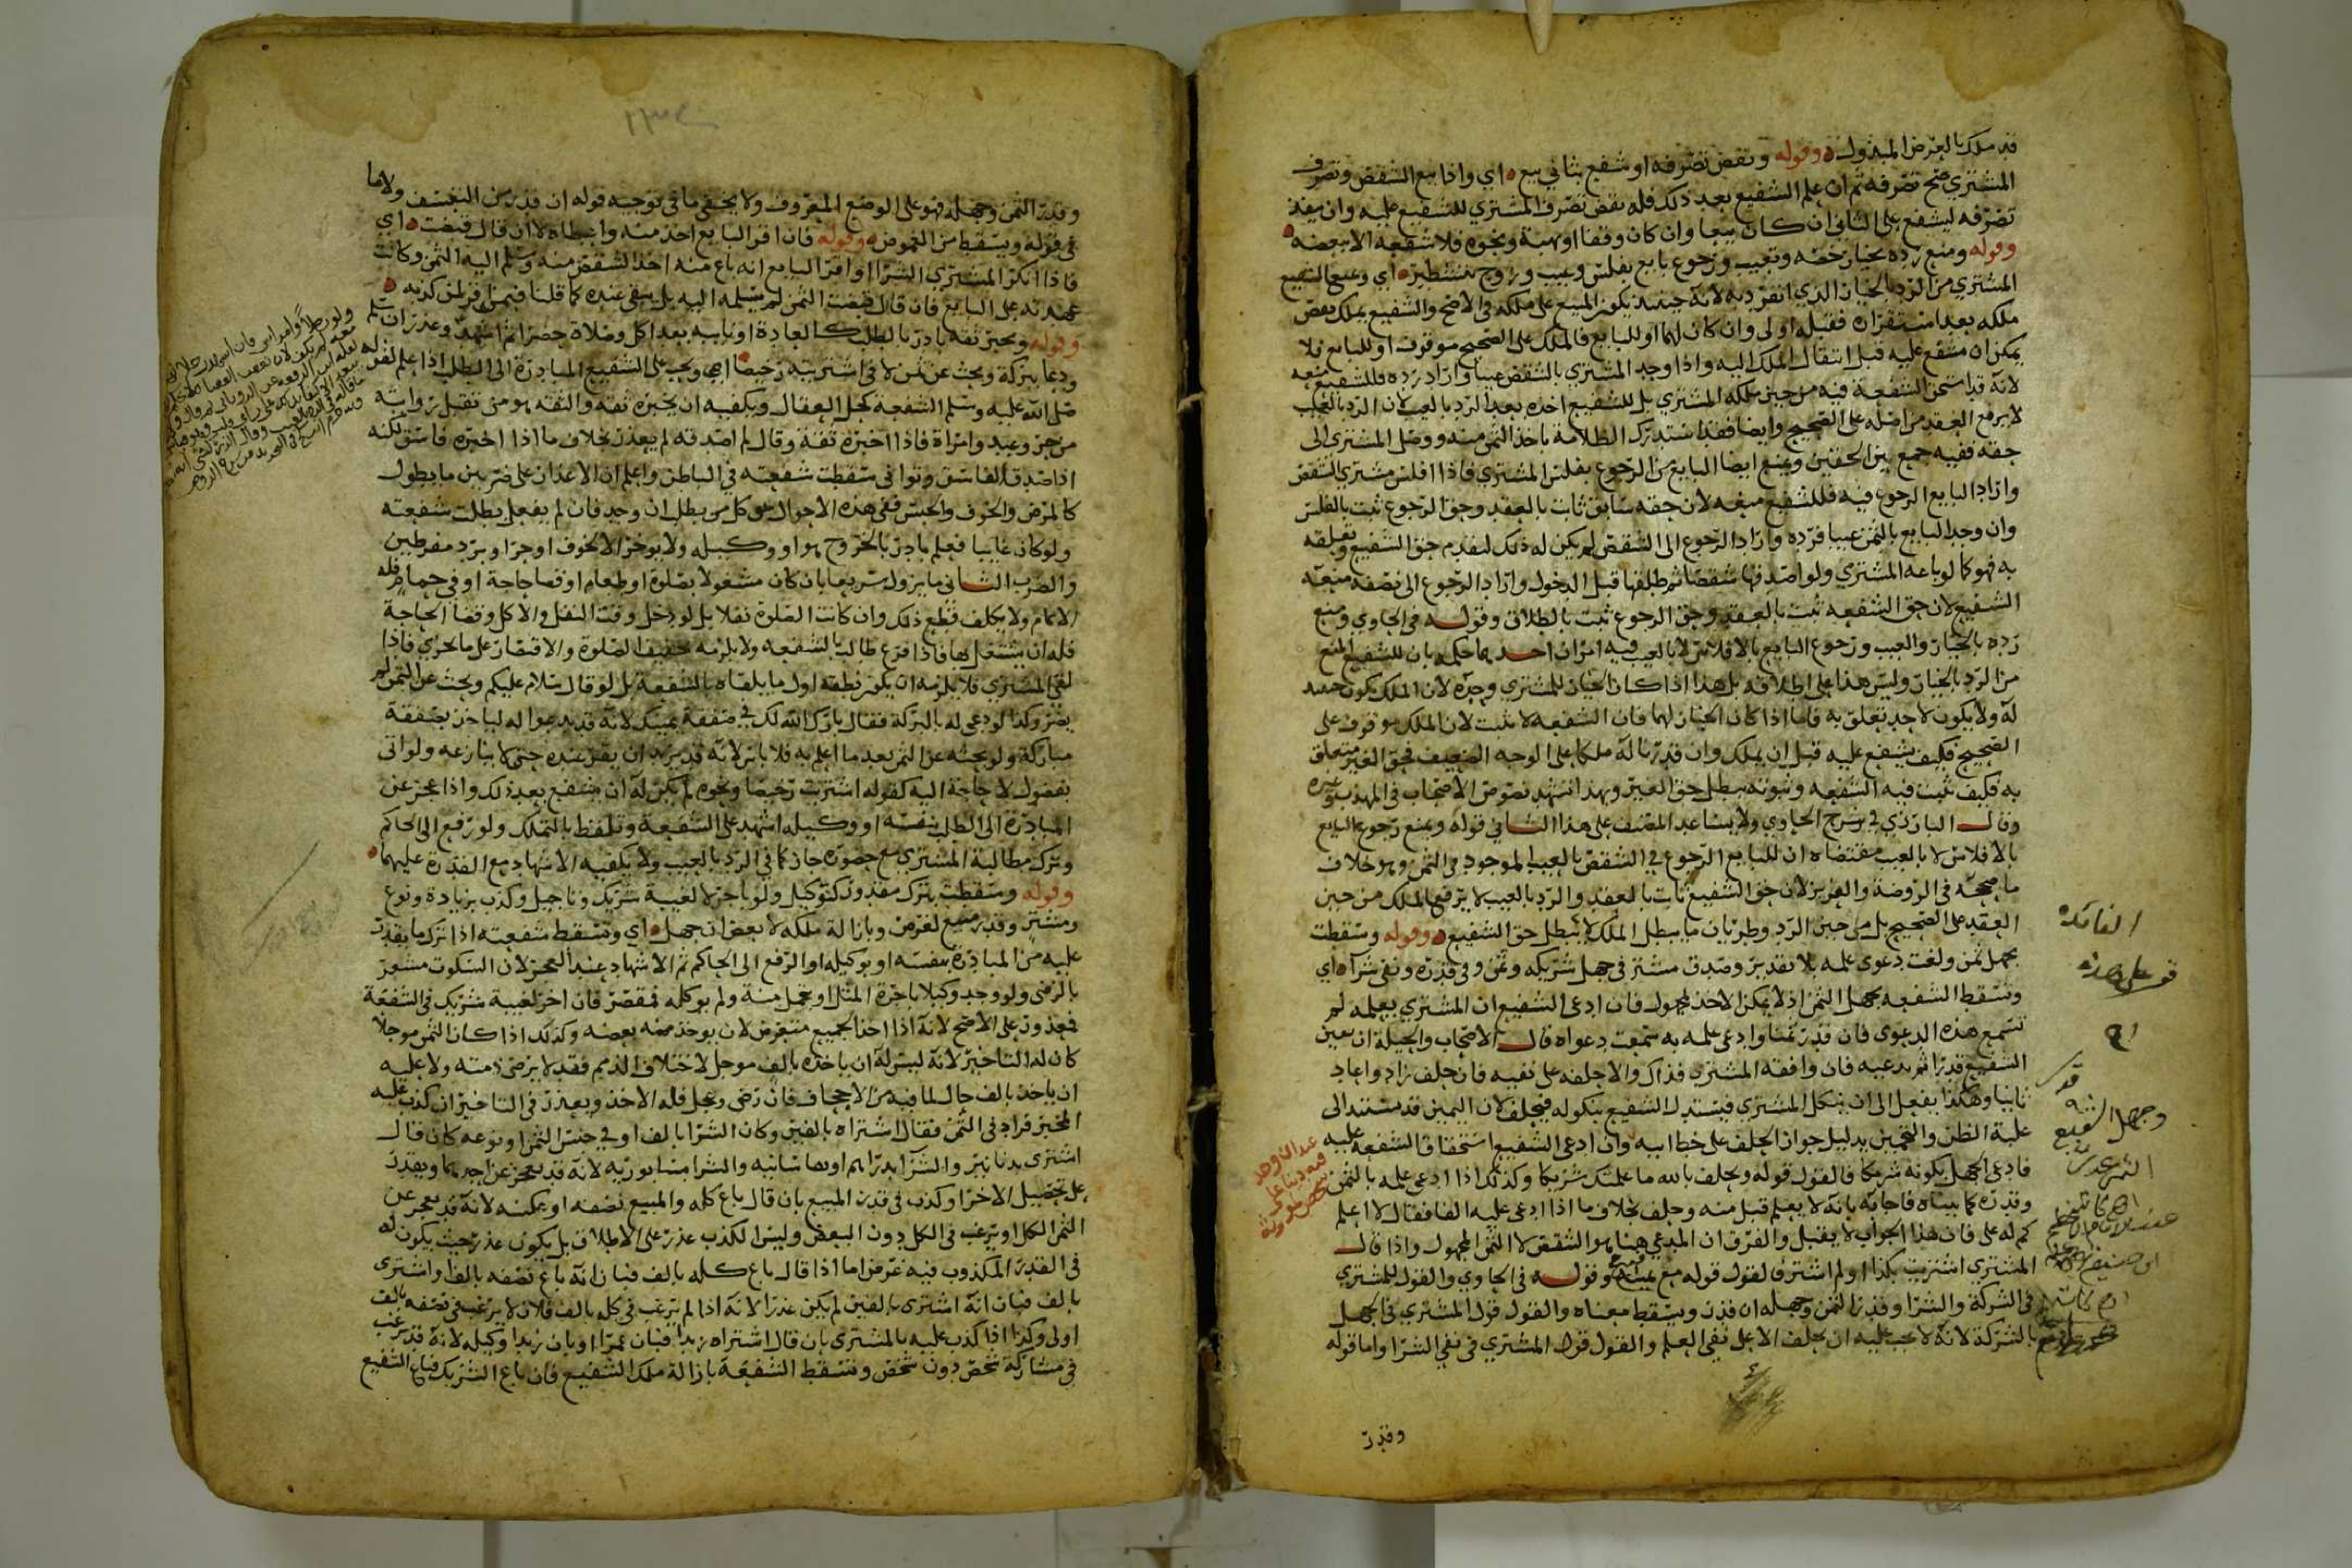 قد ملك بالعرض المبذول وقوله ونقض تصرفه او شفع بثاني بيع اي واذا بيع الشقص وتصرف
المشتري صح تصرفه ثم ان علم الشفيع بعد ذلك فله نقض تصرف المشتري للشفيع عليه وان ينفذ
تصرفه ليشفع على الثاني ان كان بيعا وان كان وقفا او هبة ونحوه فلا شفعه الا ببعضه
وقوله ومنع رده بخيار خصه وبعيب ورجوع بايع بفلس وعيب وزوج بتشطير اي ومنع الشفيع
المشتري من الرد بالخيار الذي انفرد به لانه حينئذ يكون المبيع على ملكه في الاصح والشفيع يملك بعض
ملكه بعد استقراره فقبله اولى وان كان لهما او للبايع فالملك على الصحيح موقوف او للبايع فلا
يمكن ان يشفع عليه قبل انتقال الملك اليه واذا وجد المشتري بالشقص عيبا واراد رده فللشفيع منعه
لانه قد استحق الشفعة فيه من حين ملكه المشتري بل للشفيع اخذه بعد الرد بالعيب لان الرد بالعيب
لا يرفع العقد من اصله على الصحيح وايضا فقد استدرك الظلامة باخذ الثمن منه ووصل المشتري الى
حقه ففيه جمع بين الحقين ويمنع ايضا البايع من الرجوع بفلس المشتري فاذا افلس مشتري الشقص
واراد البايع الرجوع فيه فللشفيع منعه لان حقه سابق ثابت بالعقد وحق الرجوع ثبت بالفلس
وان وجد البايع بالثمن عيبا فرده واراد الرجوع الى الشقص لم يكن له ذلك لتقدم حق الشفيع وتعلقه
به فهو كما لو باعه المشتري ولو اصدقها شقصا ثم طلقها قبل الدخول واراد الرجوع الى نصفه منعه
الشفيع لان حق الشفعه ثبت بالعقد وحق الرجوع ثبت بالطلاق وقوله في الحاوي ومنع
رده بالخيار والعيب ورجوع البايع بالافلاس لا بالعيب فيه امران احدهما حكمه بان للشفيع المنع
من الرد بالخيار وليس هذا على اطلاقه بل هذا اذا كان الخيار للمشتري وحده لان الملك يكون حينئذ
له ولا يكون لاحد تعلق به فاما اذا كان الخيار لهما فان الشفعه لا تثبت لان الملك موقوف على
الصحيح فكيف يشفع عليه قبل ان يملك وان قدرنا له ملكا على الوجه الضعيف فحق الغير متعلق
به فكيف تثبت فيه الشفعه وثبوته يبطل حق الغير وبهذا تشهد نصوص الاصحاب في المهذب وغيره
وقال البارزي في شرح الحاوي ولا يساعد المصنف على هذا الثاني قوله ويمنع رجوع البايع
بالافلاس لا بالعيب مقتضاه ان للبايع الرجوع في الشقص بالعيب الموجود في الثمن وهو خلاف
ما صححه في الروضة والعزيز لان حق الشفيع ثابت بالعقد والرد بالعيب لا يرفع الملك من حين
العقد على الصحيح بل من حين الرد وطريان ما يبطل الملك لا يبطل حق الشفيع وقوله وسقطت
بجهل ثمن ولغت دعوى علمه بلا تقدير وصدق مشتر في جهل شريكه وثمن وفي قدره ونفي شراه اي
وتسقط الشفعه بجهل الثمن اذ لا يمكن الاخذ بمجهول فان ادعى الشفيع ان المشتري يعلمه لم
تسمع هذه الدعوى فان قدر ثمنا وادعى علمه به سمعت دعواه قال الاصحاب والحيلة ان يعين
الشفيع قدرا ثم يدعيه فان وافقه المشتري فذاك والا حلفه على نفيه فان حلف زاد واعاد
ثانيا وهكذا يفعل الى ان ينكل المشتري فيستدل الشفيع بنكوله فيحلف لان اليمين قد مستند الى
غلبة الظن والتخمين بدليل جواز الحلف على خط ابيه وان ادعى الشفيع استحقاق الشفعه عليه
فادعى الجهل بكونه شريكا فالقول قوله ويحلف بالله ما علمتك شريكا وكذلك اذا ادعى علمه بالثمن
وقدره كما بيناه فاجابه بانه لا يعلم قبل منه وحلف بخلاف ما اذا ادعى عليه الفا فقال لا اعلم
كم له على فان هذا الجواب لا يقبل والفرق ان المدعي هنا هو الشقص لا الثمن المجهول واذا قال
المشتري اشتريت بكذا او لم اشتر فالقول قوله مع يمينه وقوله في الحاوي والقول للمشتري
في الشركة والشرا وقدر الثمن وجهله ان قدر ويسقط معناه والقول قول المشتري في الجهل
بالشركة لانه لا يجب عليه ان يحلف الا على نفي العلم والقول قول المشتري في نفي الشرا واما قوله
وقدر
الفائدة
وقدر الثمن وجهله فهو على الوضع المعروف ولا يخفى ما في توجيه قوله ان قدر من التعسف ولا ما
في قوله ويسقط من الغموض وقوله فان اقر البايع اخذ منه واعطاه لا ان قال قبضت اي
فاذا انكر المشتري الشرا واقر البايع انه باع منه اخذ الشقص منه وسلم اليه الثمن وكانت
عهدته على البايع فان قال قبضت الثمن لم يسلمه اليه بل يبقى عنده كما قلنا فيمن اقر لمن كذبه
وقوله وبخبر ثقه بادر بالطلب كالعادة او نايبه بعد اكل وصلاة حضرا ثم اشهد وعذر ان سلم
ودعا ببركة وبحث عن ثمن لا في اشتريته رخيصا اي ويجب على الشفيع المبادرة الى الطلب اذا علم لقوله
صلى الله عليه وسلم الشفعه كحل العقال ويكفيه ان يخبره ثقه والثقه هو من تقبل روايته
من حر وعبد وامراة فاذا اخبره ثقة وقال لم اصدقه لم يعذر بخلاف ما اذا اخبره فاسق لكنه
اذا صدق الفاسق وتوانى سقطت شفعته في الباطن واعلم ان الاعذار على ضربين ما يطول
كالمرض والخوف والحبس ففي هذه الاحوال يوكل من يطلب ان وجد فان لم يفعل بطلت شفعته
ولو كان غايبا فعلم بادر بالخروج هو او وكيله ولا يوخر الا لخوف او حر او برد مفرطين
والضرب الثاني ما يزول سريعا بان كان مشغولا بصلوة او طعام او قضا حاجة او في حمام فله
الاتمام ولا يكلف قطع ذلك وان كانت الصلوة نفلا بل لو دخل وقت النفل والاكل وقضا الحاجة
فله ان يشتغل بها فاذا فرغ طالب بالشفعه ولا يلزمه تخفيف الصلوة والاقتصار على ما يجزي فاذا
لقي المشتري فلا يلزمه ان يكون نطقه اول ما يلقاه بالشفعة بل لو قال سلام عليكم وبحث عن الثمن لم
يضر وكذا لو دعى له بالبركة فقال بارك الله لك في صفقة يمينك لانه قد يدعوا له لياخذ بصفقة
مباركة ولو بحثه عن الثمن بعد ما اعلم به فلا باس لانه قد يريد ان يقر عنده حتى لا ينازعه ولو اتى
بفضول لا حاجة اليه كقوله اشتريت رخيصا ونحوه لم يكن له ان يشفع بعد ذلك واذا عجز عن
المبادرة الى الطلب بنفسه او وكيله اشهد على الشفعة وتلفظ بالتملك ولو رفع الى الحاكم
وترك مطالبة المشتري مع حضوره جاز كما في الرد بالعيب ولا يكفيه الاشهاد مع القدرة عليهما
وقوله وسقطت بترك مقدور كتوكيل ولو باجر لا لغيبة شريك وتاجيل وكذب بزيادة ونوع
ومشتر وقدر مبيع لغرض وبازالة ملكه لا بعض ان جهل اي وتسقط شفعته اذا ترك ما يقدر
عليه من المبادرة بنفسه او بوكيله او الرفع الى الحاكم ثم الاشهاد عند العجز لان السكوت مشعر
بالرضى ولو وجد وكيلا باجرة المثل او تحمل منة ولم يوكله فمقصر فان اخر لغيبة شريك في الشفعة
فمعذور على الاصح لانه اذا اخذ الجميع متعرض لان يوخذ منه بعضه وكذلك اذا كان الثمن موجلا
كان له التاخير لانه ليس له ان ياخذه بالف موجل لاختلاف الذمم فقد لا يرضى ذمته ولا عليه
ان ياخذ بالف حال لما فيه من الاجحاف فان رضى وعجل فله الاخذ ويعذر في التاخير ان كذب عليه
المخبر فزاد في الثمن فقال اشتراه بالفين وكان الشرا بالف او في جنس الثمن او نوعه كان قال
اشترى بدنانير والشرا بدراهم او بقاسانيه والشرا بنيسابوريه لانه قد يعجز عن احدهما ويقدر
على تحصيل الاخر او كذب في قدر المبيع بان قال باع كله والمبيع نصفه او يمكنه لانه قد يعجز عن
الثمن الكل او يرغب في الكل دون البعض وليس الكذب عذر على الاطلاق بل يكون عذر حيث يكون له
في القدر المكذوب فيه غرض اما اذا قال باع كله بالف فبان انه باع نصفه بالف او اشترى
بالف فبان انه اشترى بالفين لم يكن عذرا لانه اذا لم يرغب في كله بالف فلان لا يرغب في نصفه بالف
اولى وكذا اذا كذب عليه بالمشتري بان قال اشتراه زيد فبان عمرا او بان زيدا وكيله لانه قد يرغب
في مشاركة شخص دون شخص وتسقط الشفعة بازالة ملك الشفيع فان باع الشريك فباع الشفيع